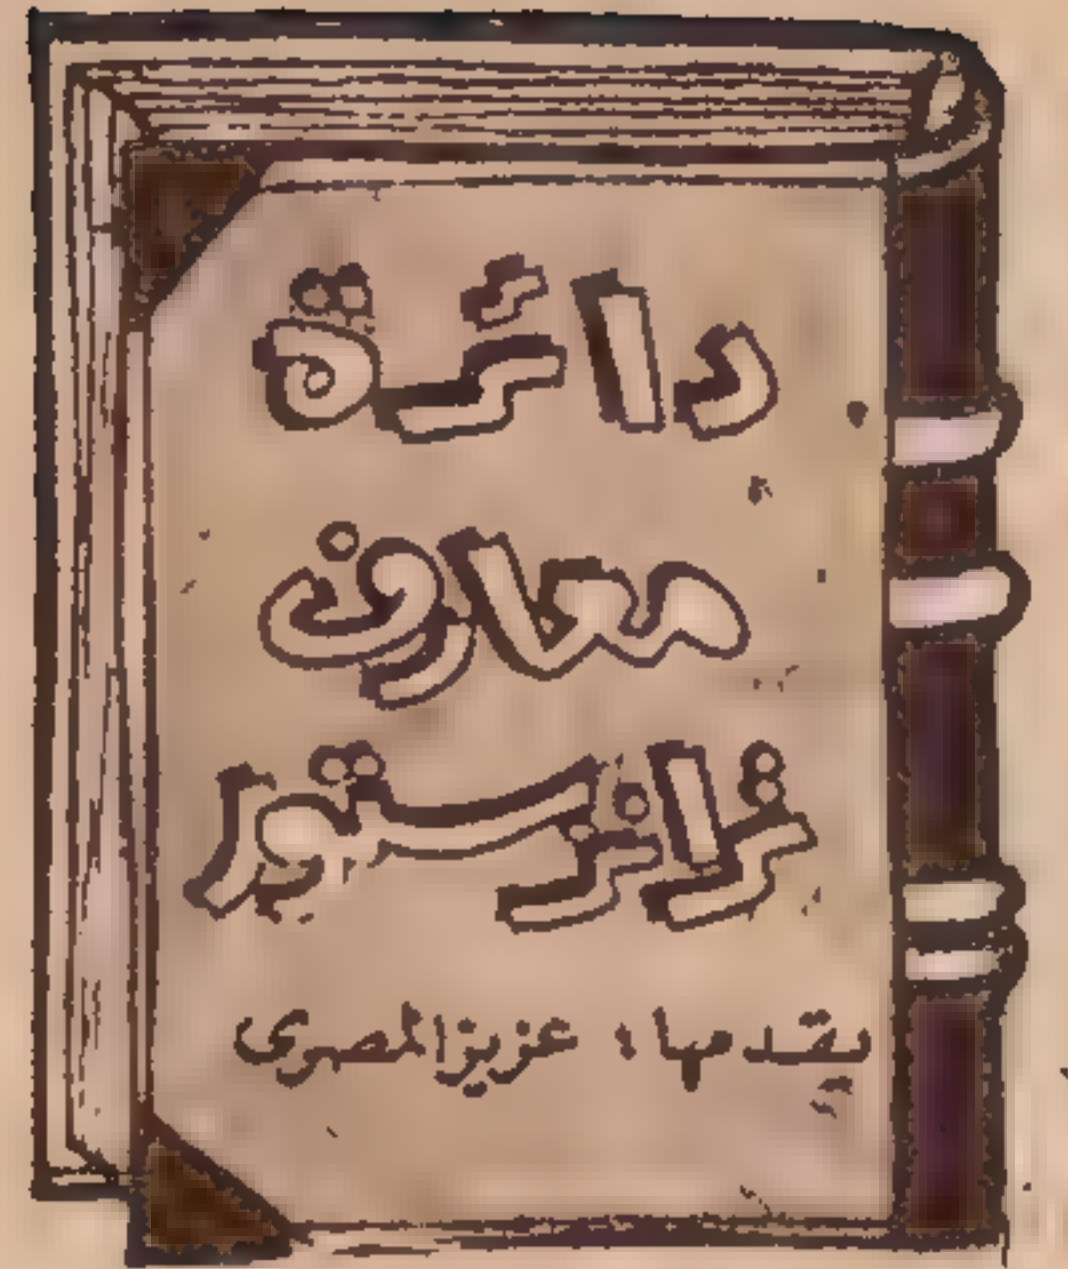 دائرة
معارف
ترانزستور
يقدمها : عزيز المصرى